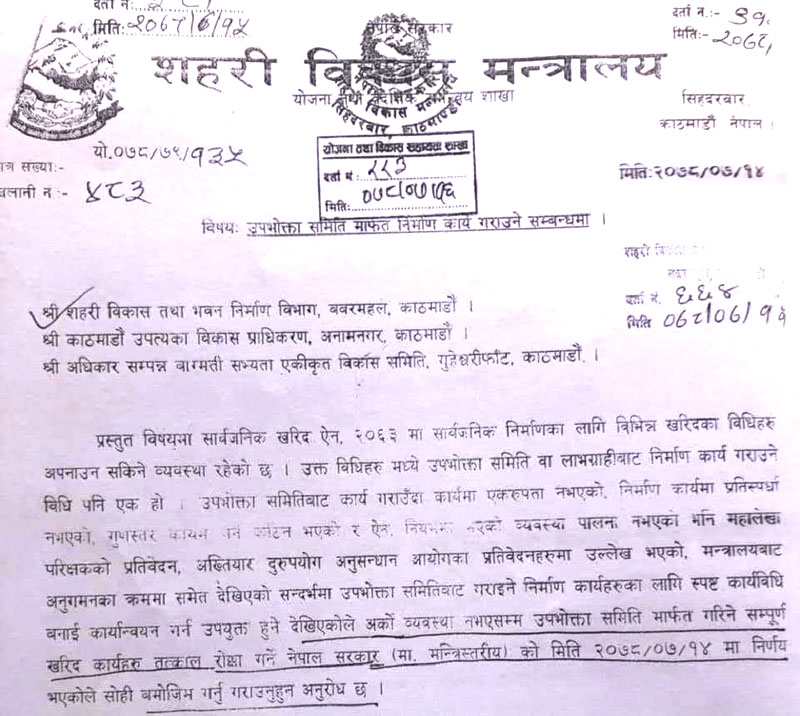 दर्ता नं.
मिति: २०७८/७/१५
दर्ता नं.:-
मिति:- २०७८/
नेपाल सरकार
शहरी विकास मन्त्रालय
योजना तथा शाखा
सिंहदरवार, काठमाडौं
सिहदरवार,
काठमाडौं नेपाल ।
यो.०७८/७९/१३५
पत्र संख्या:-
चलानी नं :- ४८३
योजना तथा विकास सहायता शाखा
दर्ता नं : २२३
मिति:
मिति:२०७८/०७/१४
विषय: उपभोक्ता समिति मार्फत निर्माण कार्य गराउने सम्बन्धमा ।
दर्ता नं. ६६४
मिति
श्री शहरी विकास तथा भवन निर्माण विभाग, बवरमहल, काठमाडौं ।
श्री काठमाडौं उपत्यका विकास प्राधिकरण, अनामनगर, काठमाडौं ।
श्री अधिकार सम्पन्न वाग्मती सभ्यता एकीकृत विकास समिति, गुहेश्वरीफाँट, काठमाडौं, ।
प्रस्तुत विषयमा सार्वजनिक खरिद ऐन, २०६३ मा सार्वजनिक निर्माणका लागि विभिन्न खरिदका विधिहरु
अपनाउन सकिने व्यवस्था रहेको छ । उक्त विधिहरु मध्ये उपभोक्ता समिति वा लाभग्राहीबाट निर्माण कार्य गराउने
विधि पनि एक हो । उपभोक्ता समितिबाट कार्य गराउँदा कार्यमा एकरुपता नभएको, निर्माण कार्यमा प्रतिस्पर्धा
नभएको, गुणस्तर कायम गर्न कठिन भएको र ऐन, नियममा भएको व्यवस्था पालना नभएको भनि महालेखा
परिक्षकको प्रतिवेदन, अख्तियार दुरुपयोग अनुसन्धान आयोगका प्रतिवेदनहरुमा उल्लेख भएको, मन्त्रालयबाट
अनुगमनका क्रममा समेत देखिएको सन्दर्भमा उपभोक्ता समितिबाट गराइने निर्माण कार्यहरुका लागि स्पष्ट कार्यविधि
बनाई कार्यान्वयन गर्न उपयुक्त हुने देखिएकोले अर्को व्यवस्था नभएसम्म उपभोक्ता समिति मार्फत गरिने सम्पूर्ण
खरिद कार्यहरु तत्काल रोक्का गर्ने नेपाल सरकार (मा. मन्त्रिस्तरीय) को मिति २०७८/०७/१४ मा निर्णय
भएकोले सोही बमोजिम गर्नु गराउनुहुन अनुरोध छ ।